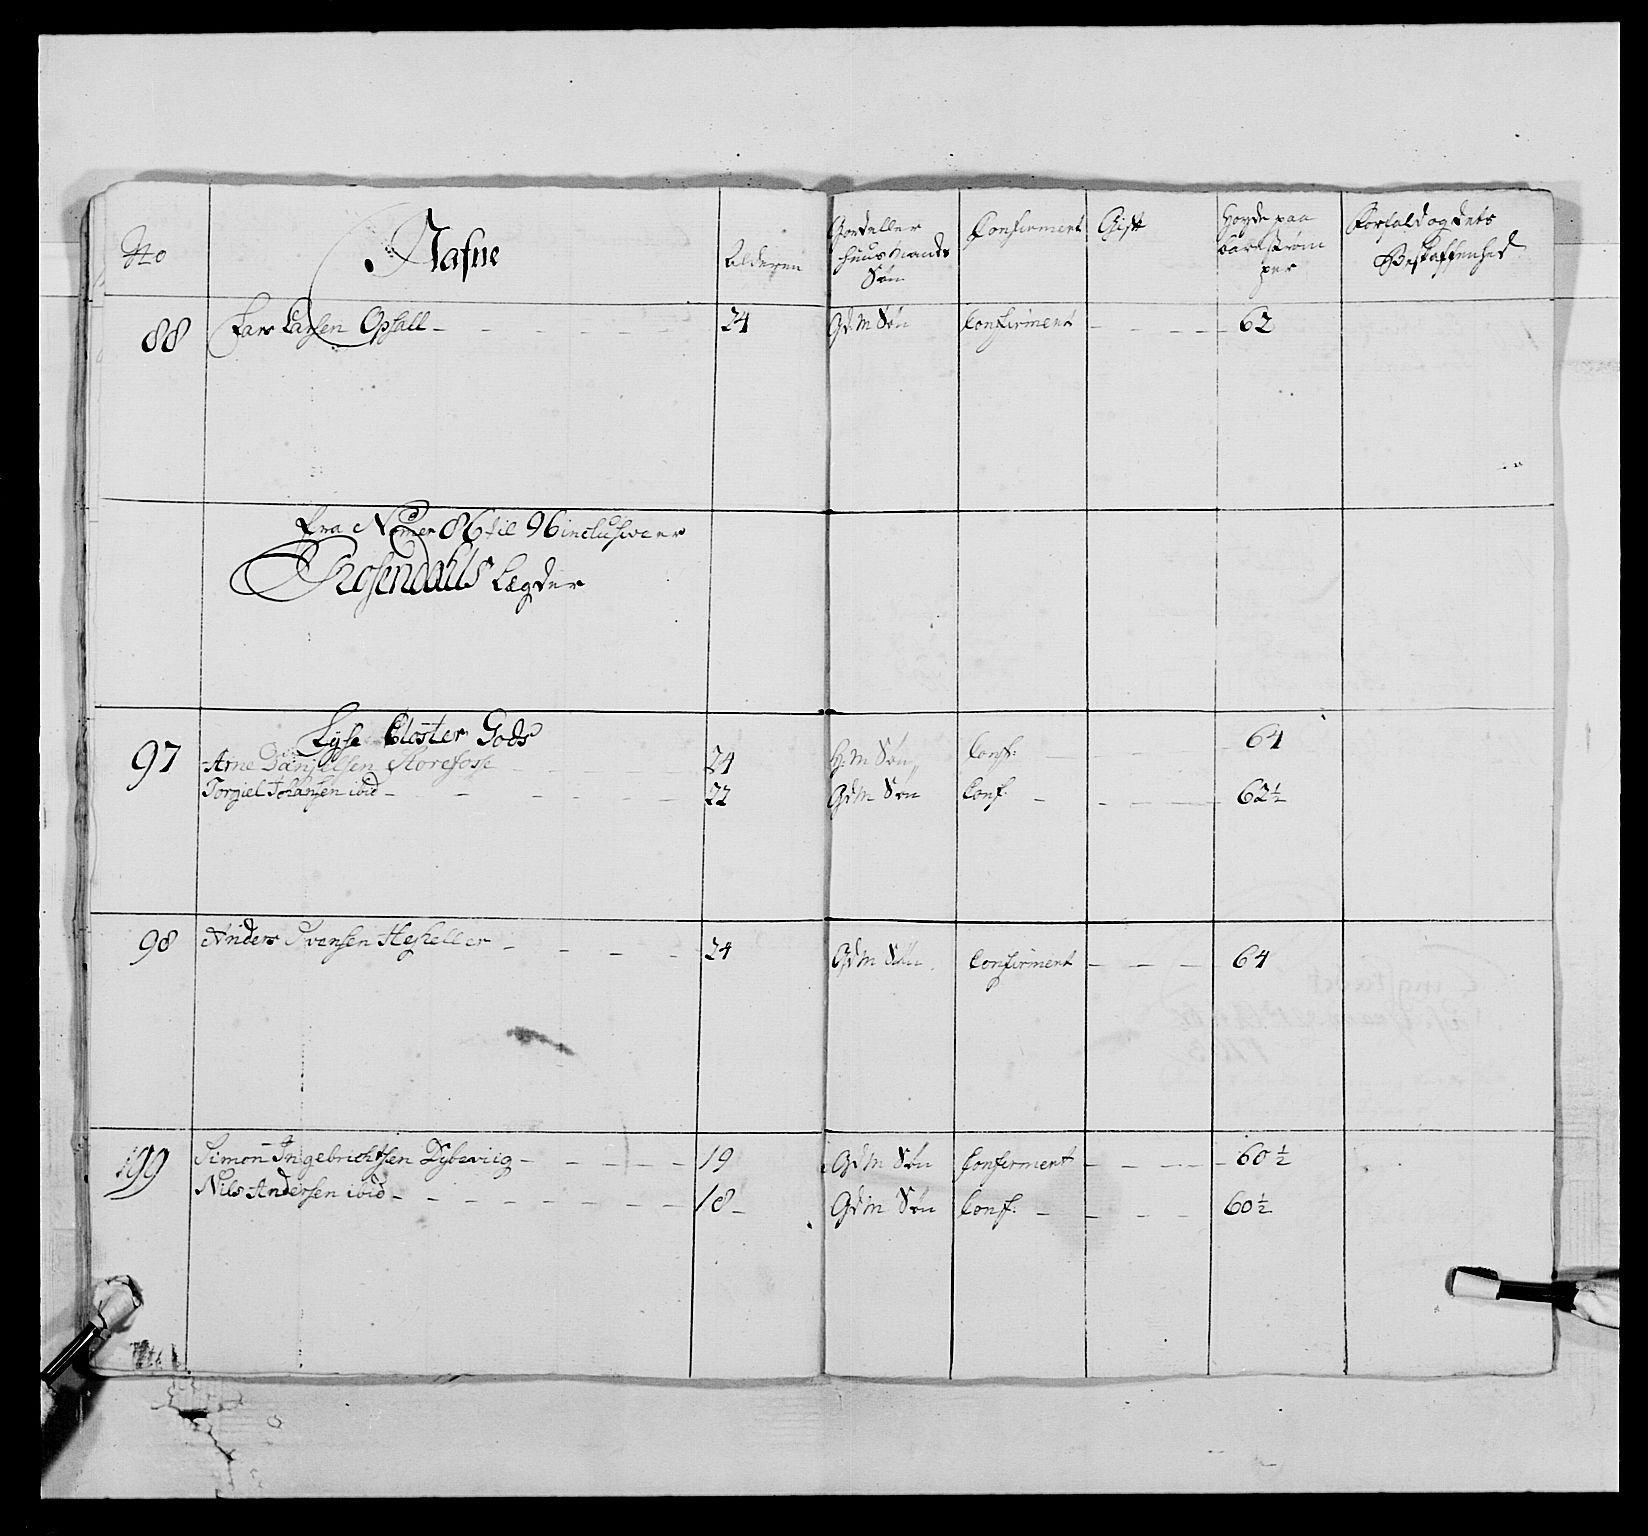 No Nafne Alderen Gord eller Confirment Gift Høyde paa Forfald og dets
huus Mands
Søn
per
Beskaffenhed
88 Lars Larsen Opsall 24 Gd: M Søn Confirment 62
Fra Nomer 86 til 96 inclusive er
Rosendahls Lægder
Lyse Closter Gods
97 Arne Danielsen Storefosse 24 H: M Søn Conf: 64
Torgiel Johansen ibid 22 Gd M Søn Conf 62½
98 Anders Svensen Hesteller 24 Gd M Søn Confirment 64
199 Simon Ingebrichtsen Dybeviig 19 Gd M Søn Conferment 60½
Nils Andersen ibid 18 Gd M Søn Conf: 60½